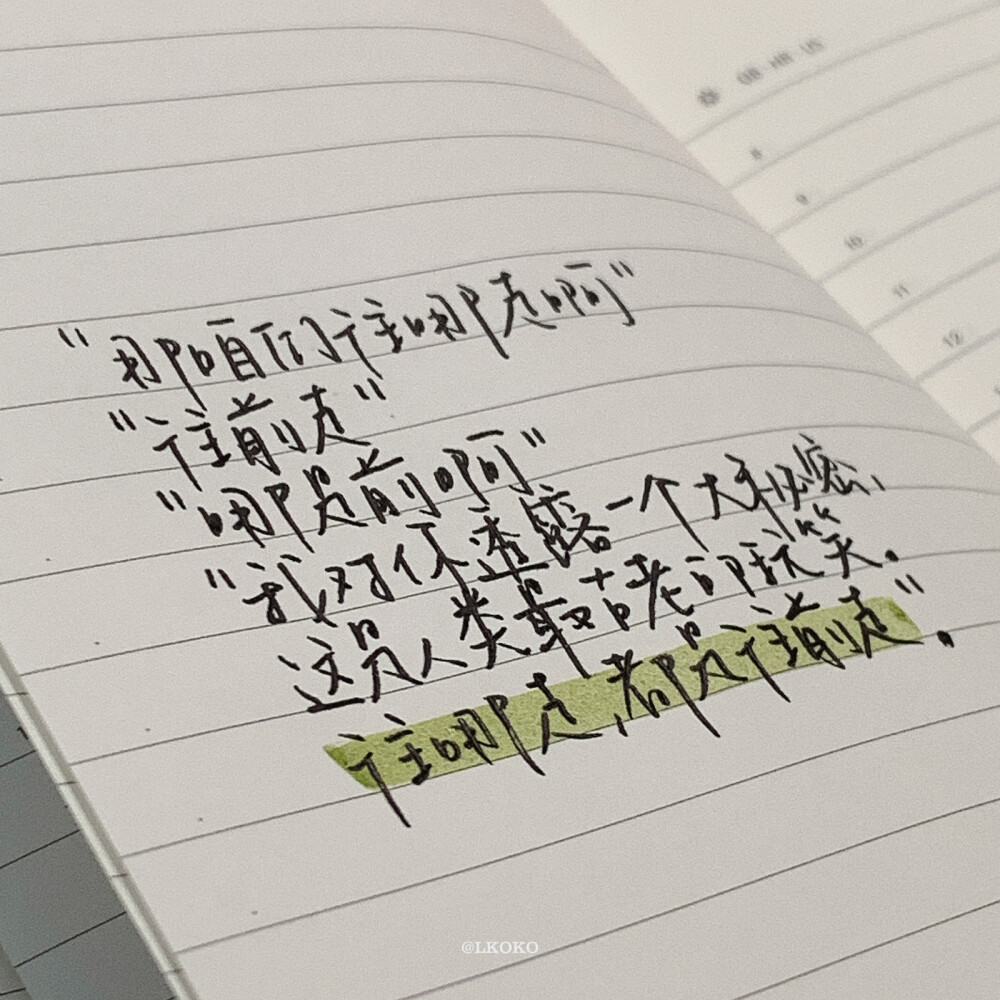 "那咱们往哪走啊"
"往前走"
"哪是前啊"
"我对你透露一个大秘密、
这是人类最古老的玩笑。
往哪走,都是往前走"。
8
9
10
11
12
@LKOKO